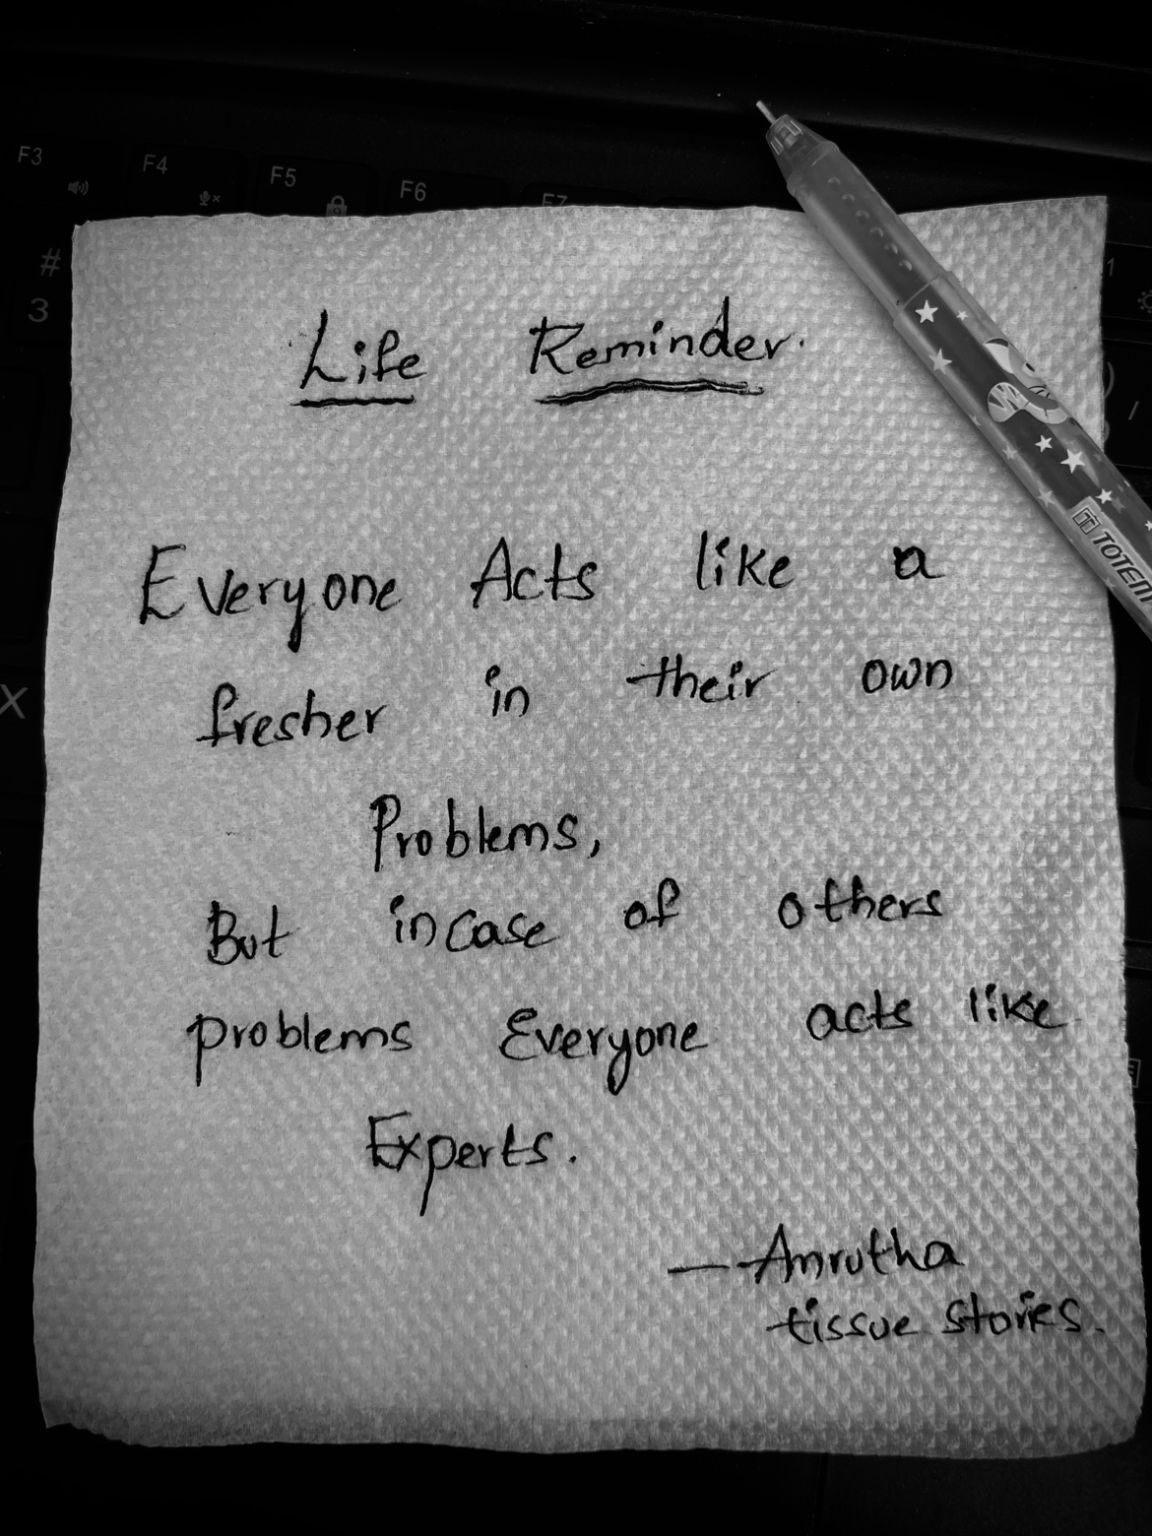 F3
F4
F5
F6
F7
#
3
X
Life Reminder.
Everyone Acts like a
fresher in their own
Problems,
But incase of others
problems Everyone acts like
Experts.
—Amrutha
tissue stories.
TOTEM